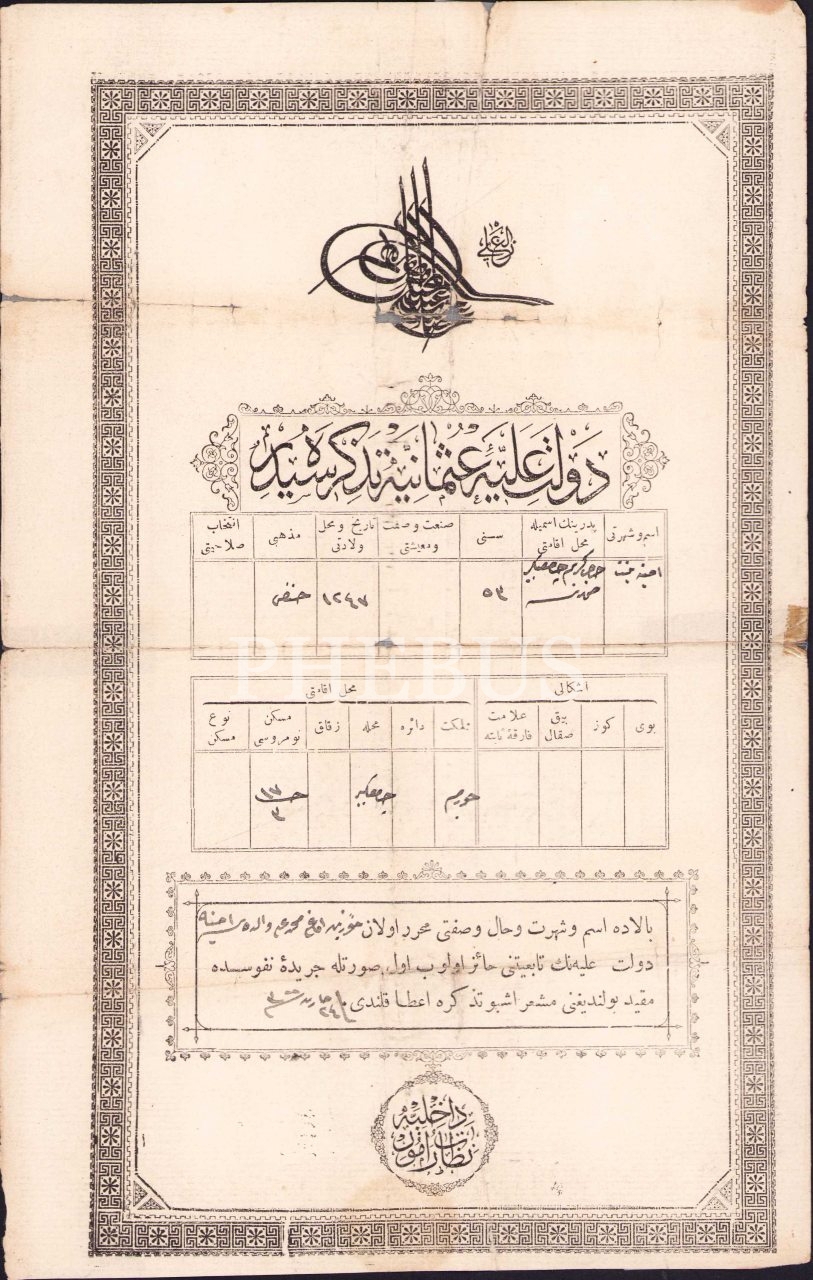 الغازی
دولت علیۀ عثمانیه تذکره سیدر
اسم و شهرتی پدرینك اسمیله محل اقامتی سنی صنعت و صفت ومعیشتی تاریخ و محل ولادتی مذهبی انتخاب صلاحیتی
امینه ٥٣ ١٢٤٧ حنفی
اشکالی محل اقامتی
بوی کوز صقال علامت فارقۀ ثابته مملکت دائره محله زقاق مسکن نومروسی نوع مسکن
جامعکبیر ١٧
٣
بالاده اسم و شهرت وحال وصفتی محرر اولان والده سی امینه
دولت علیه نك تابعیتنی حائز اولوب اول صورتله جریدۀ نفوسده
مقید بولندیغنی مشعر اشبو تذکره اعطا قلندی
داخلیه نظارت
PHEBUS